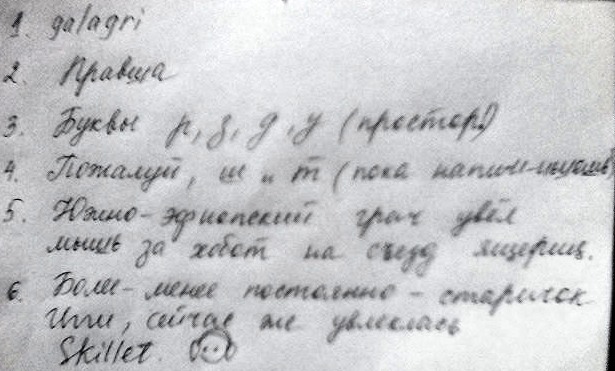 1. galagri
2. Правша
3. Буквы р, з, д, у (простор!)
4. Пожалуй, ш и т (пока напиш-
5. Южно-эфиопский грач увёл
мышь за хобот на съезд ящериц.
6. Более-менее постоянно - старичок
Игги, сейчас же увлеклась
Skillet.